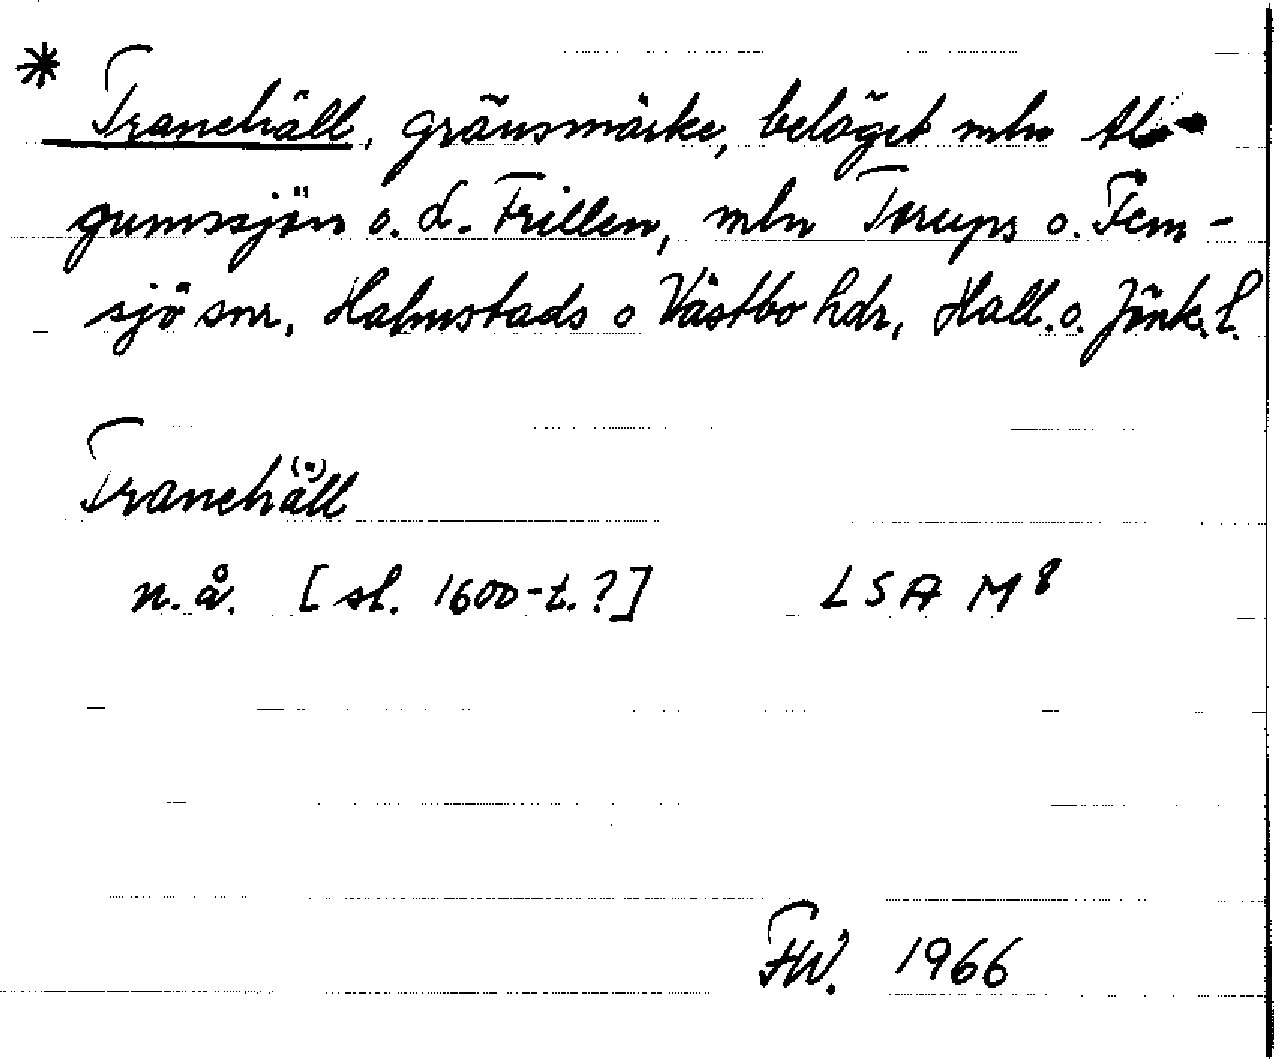 * Tranehäll, gränsmärke, beläget mln Al-
gumssjön o. L. Frillen, mln Torups o. Fem-
sjö snr, Halmstads o Västbo hdr, Hall. o. Jönk. l.
Tranehä(")ll
n.å. [sl. 1600-t.?] LSA M8
FW. 1966